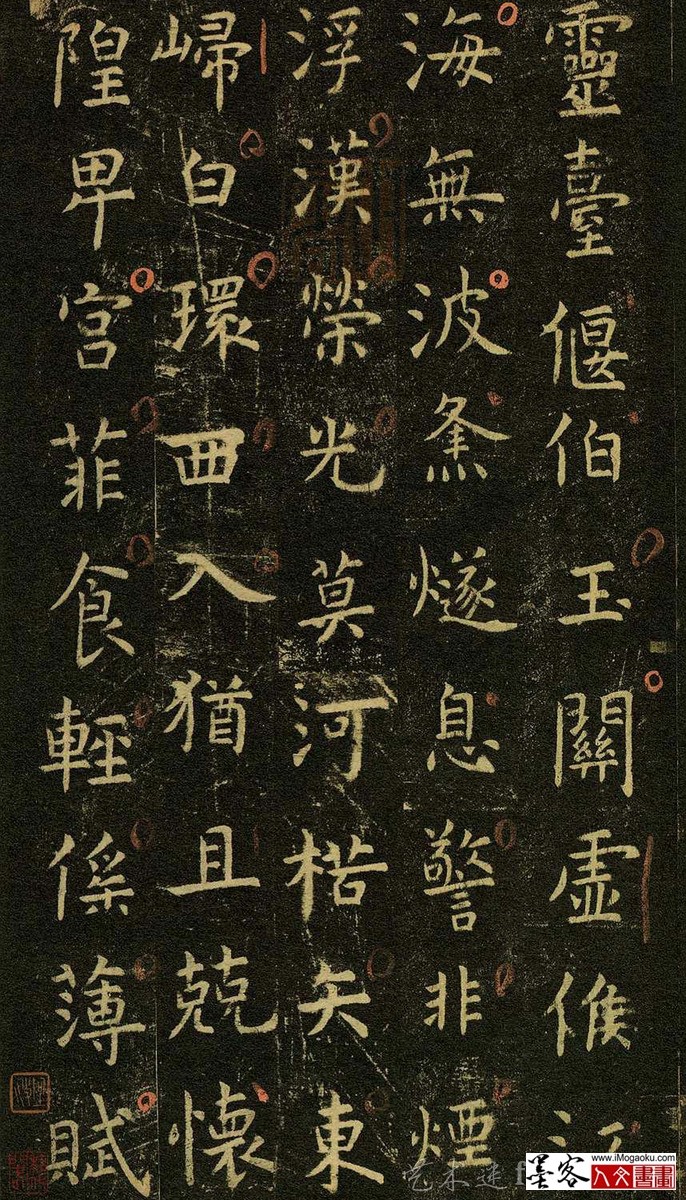 靈臺偃伯玉關虛候江
海無波㷭燧息警非煙
浮漢榮光莫河楛矢東
歸白環西入猶且兢懷
隍卑宮菲食輕徭薄賦
墨客
www.iMogaoku.com
人文書畫